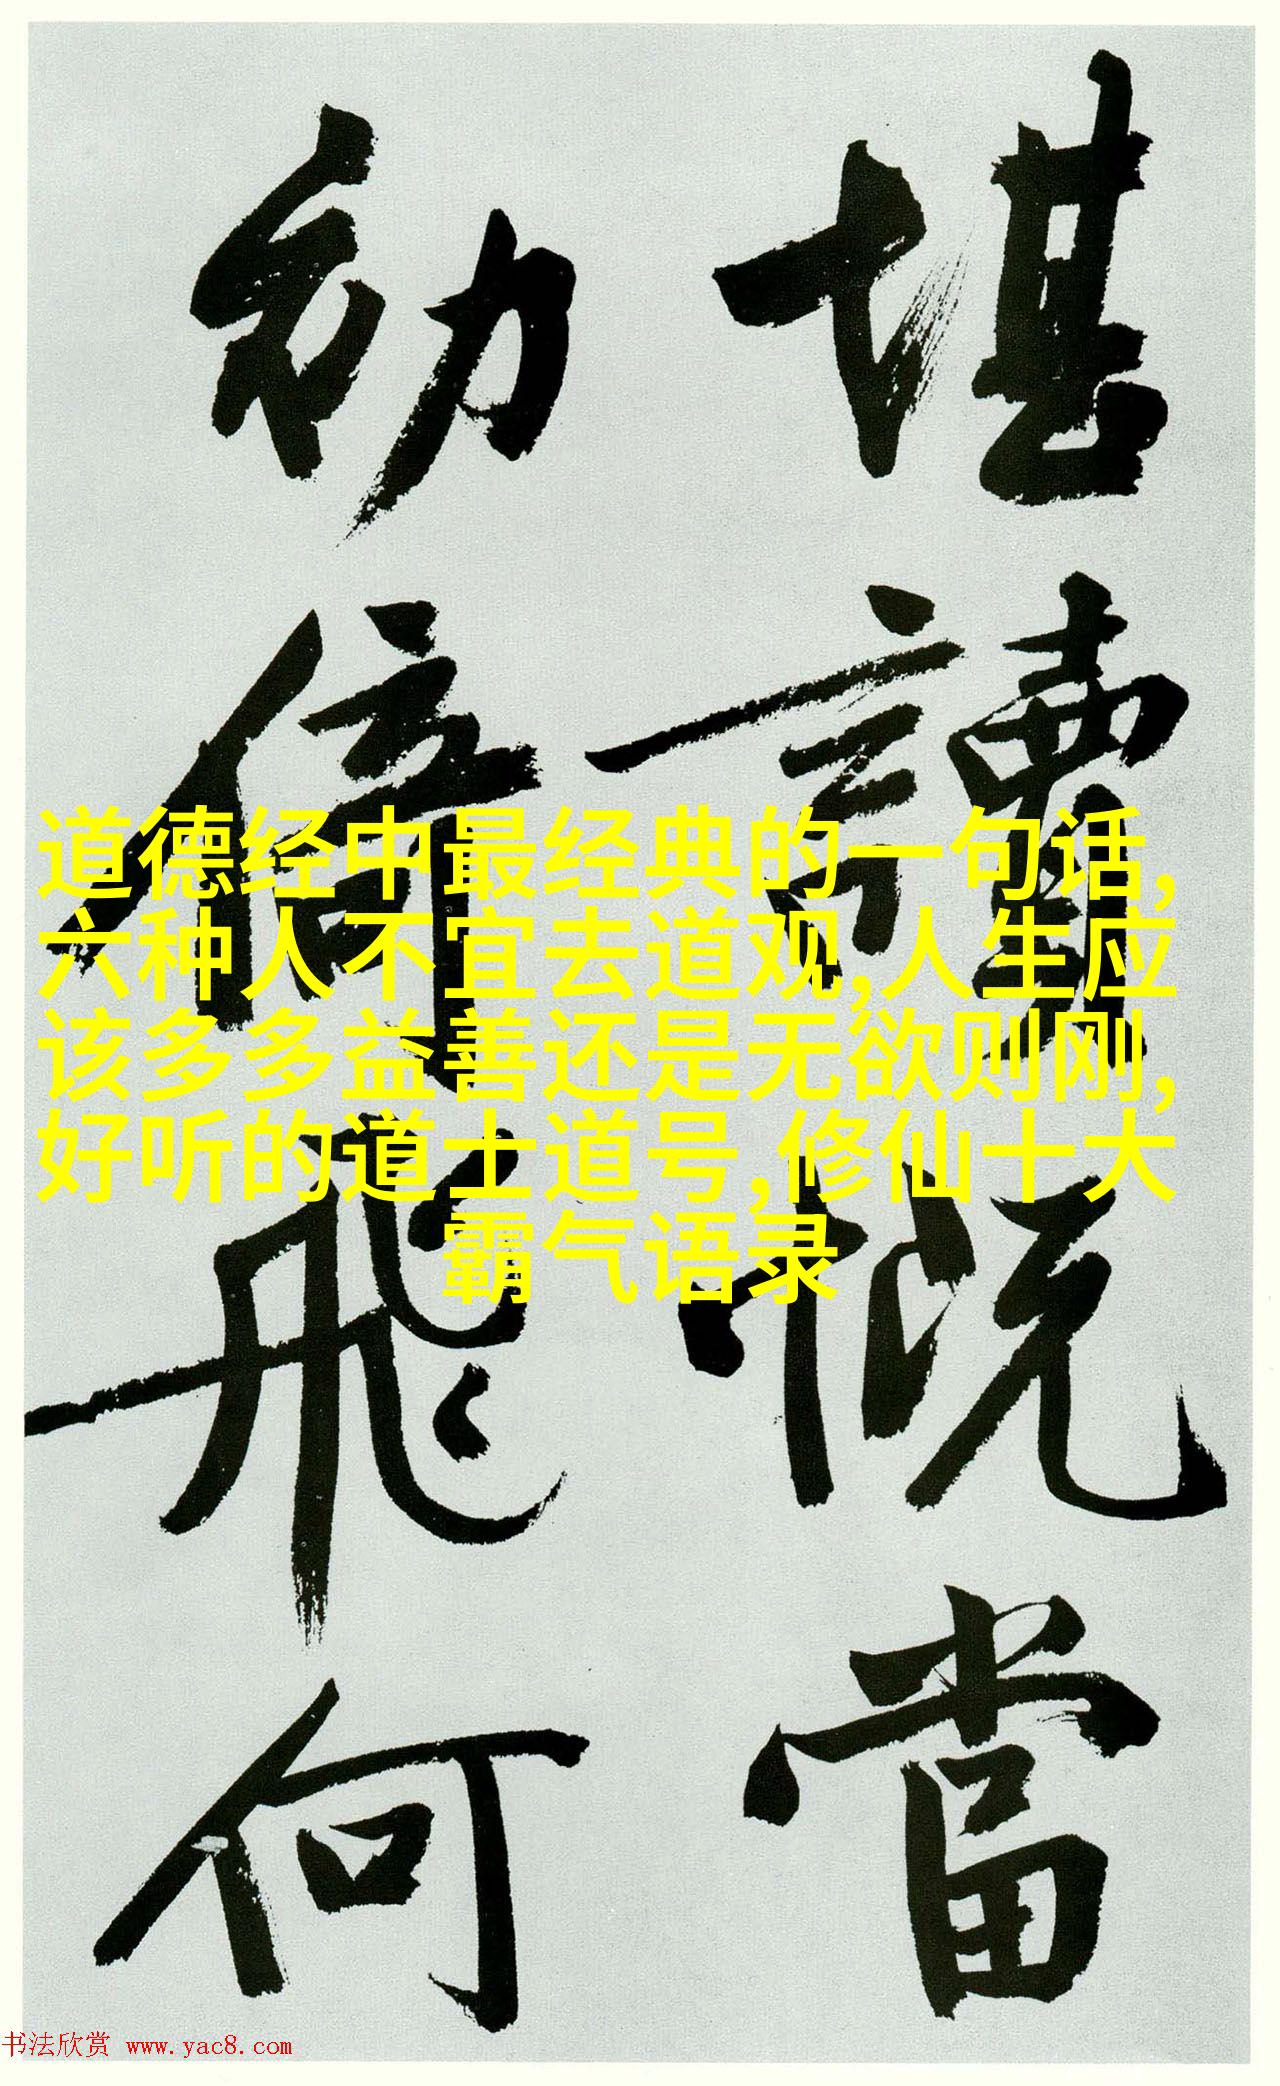 堪讀慨當
初倚飛何
道德经中最经典的一句话,
六种人不宜去道观,人生应
该多多益善还是无欲则刚,
好听的道士道号,修仙十大
霸气语录
书法欣赏 www.yac8.com